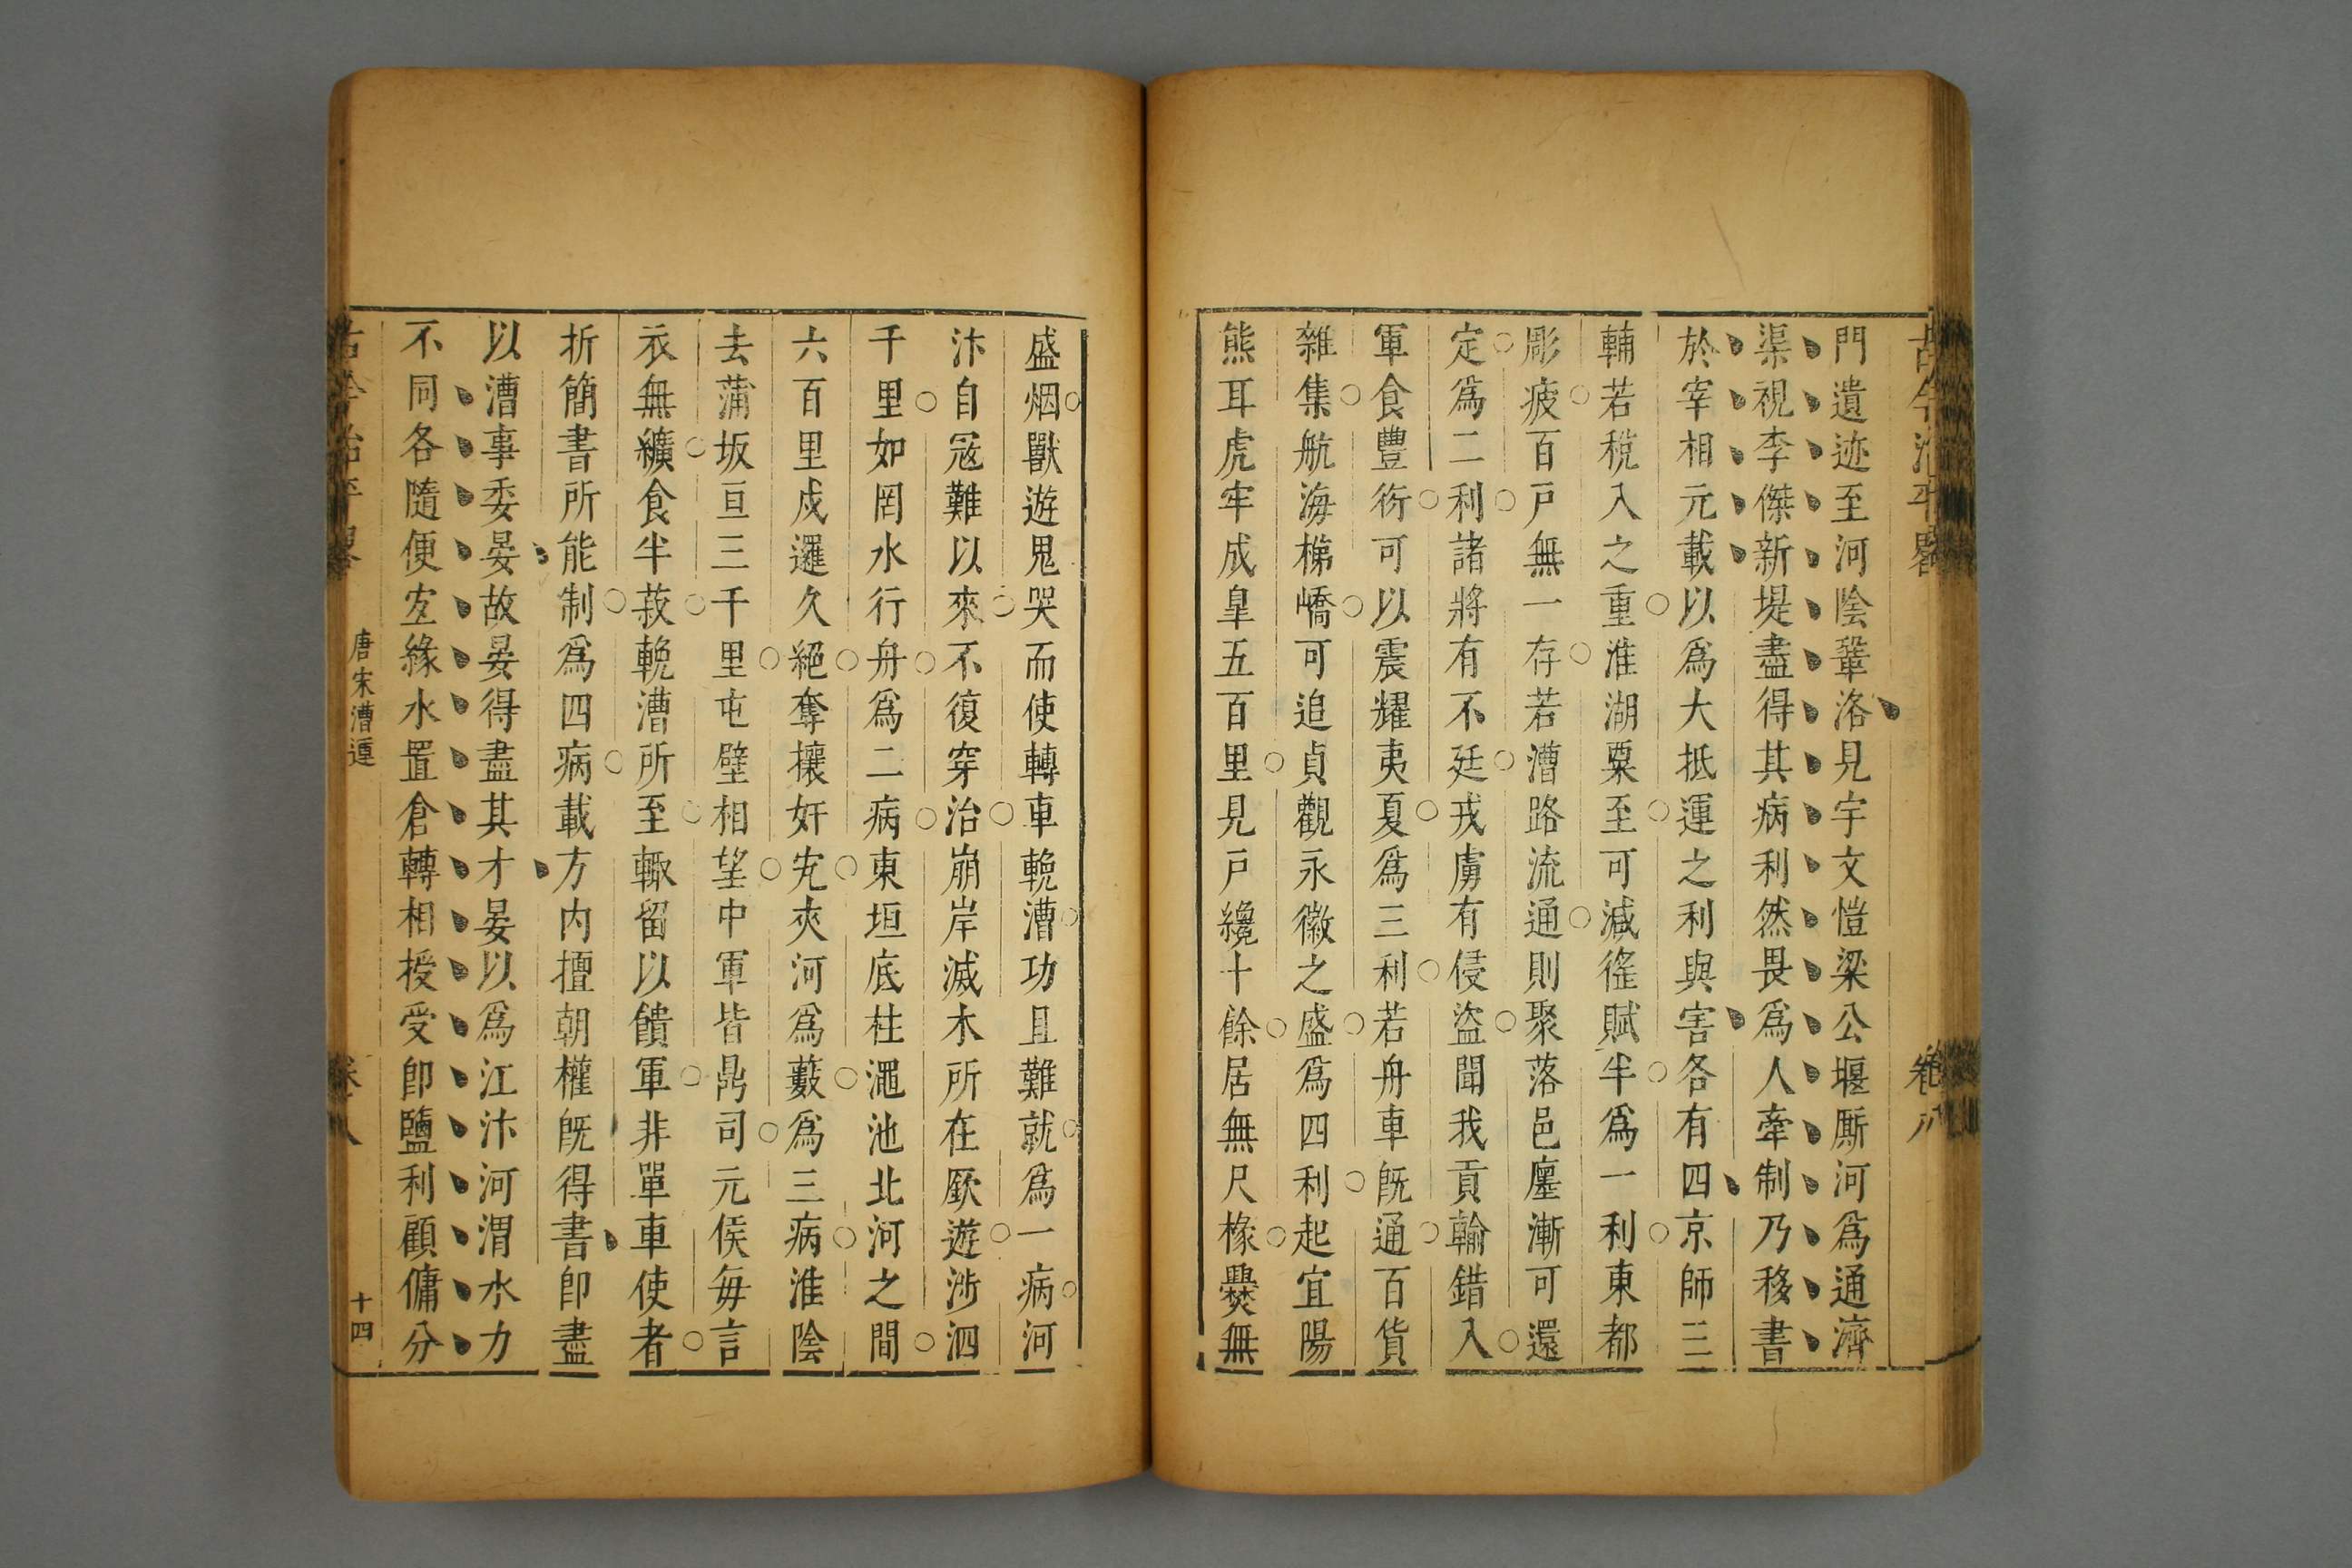 古今治平略
卷八
門遺迹至河陰鞏洛見宇文愷梁公堰厮河爲通濟
渠視李傑新堤盡得其病利然畏爲人牽制乃移書
於宰相元載以爲大抵運之利與害各有四京師三
輔若稅入之重淮湖粟至可減徭賦半爲一利東都
彫疲百戸無一存若漕路流通則聚落邑廛漸可還
定爲二利諸將有不廷戎虜有侵盜聞我貢輸錯入
軍食豐衍可以震耀夷夏爲三利若舟車旣通百貨
雜集航海梯嶠可追貞觀永徽之盛爲四利起宜陽
熊耳虎牢成皐五百里見戸纔十餘居無尺椽爨無
盛烟獸遊鬼哭而使轉車輓漕功且難就爲一病河
汴自冦難以來不復穿治崩岸滅木所在厥遊涉泗
千里如罔水行舟爲二病東垣底柱澠池北河之間
六百里戍邏久絕奪攘奸宄夾河爲藪爲三病淮陰
去蒲坂亘三千里屯壁相望中軍皆鼎司元侯每言
衣無纊食半菽輓漕所至輙留以饋軍非單車使者
折簡書所能制爲四病載方内擅朝權旣得書卽盡
以漕事委晏故晏得盡其才晏以爲江汴河渭水力
不同各隨便宐緣水置倉轉相授受卽鹽利顧傭分
古今治平畧
唐宋漕運
卷八
十四